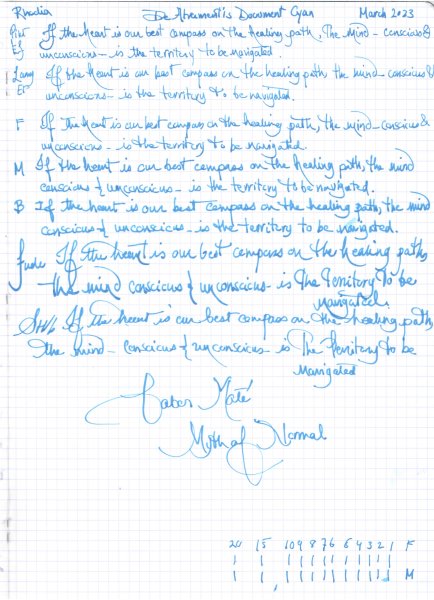 Rhodia De Atramentis Document Cyan March 2023
Pilot If the heart is our best compass on the healing path, The mind - conscious &
Ef unconscious - is the territory to be navigated.
Lamy If the heart is our best compass on the healing path, the mind - conscious &
EF unconscious - is the territory to be navigated.
F If the heart is our best compass on the healing path, the mind - conscious &
unconscious - is the territory to be navigated.
M If the heart is our best compass on the healing path, the mind
conscious & unconscious - is the territory to be navigated.
B If the heart is our best compass on the healing path, the mind
conscious & unconscious - is the territory to be navigated.
Fude If the heart is our best compass on the healing path,
the mind conscious & unconscious - is The Territory to be
navigated.
If the heart is our best compass on the healing path,
the mind - conscious & unconscious - is The Territory to be
Navigated
Gabor Maté
Myth of Normal
20 15 10 9 8 7 6 5 4 3 2 1 F
M